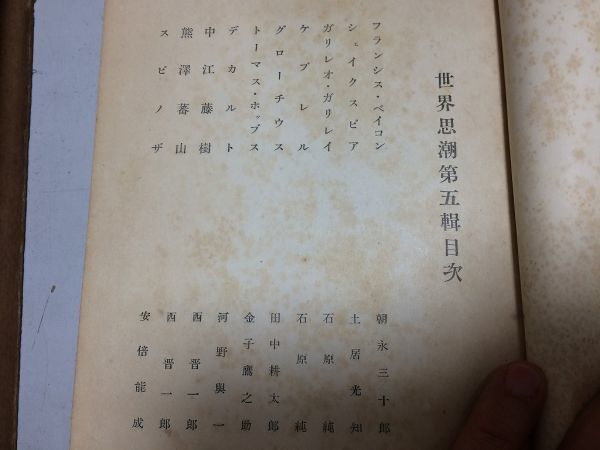 世界思潮第五輯目次
フランシス・ベイコン 朝永三十郎
シェイクスピア 土居光知
ガリレオ・ガリレイ 石原純
ケプレル 石原純
グローチウス 田中耕太郎
トーマス・ホッブス 金子鷹之助
デカルト 河野與一
中江藤樹 西晋一郎
熊澤蕃山 西晋一郎
スピノザ 安倍能成